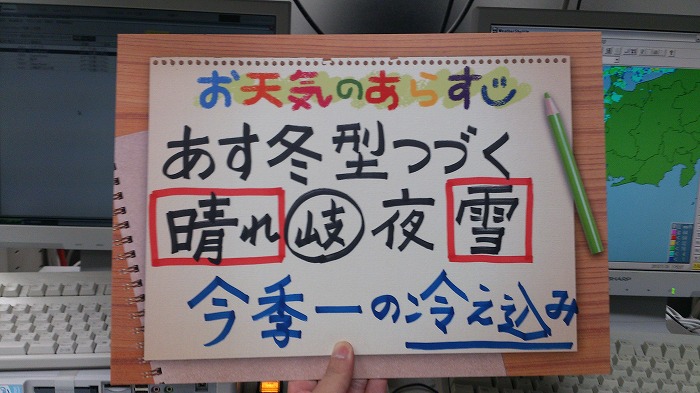 お天気のあらすじ
あす冬型つづく
晴れ 岐 夜 雪
今季一の冷え込み
SHARP